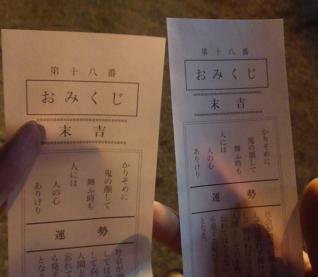 第十八番
おみくじ
末吉
かりそめに
鬼の顔して
舞ふ時も
人には
人の心
ありけり
運勢
第十八番
おみくじ
末吉
かりそめに
鬼の顔して
舞ふ時も
人には
人の心
ありけり
運勢